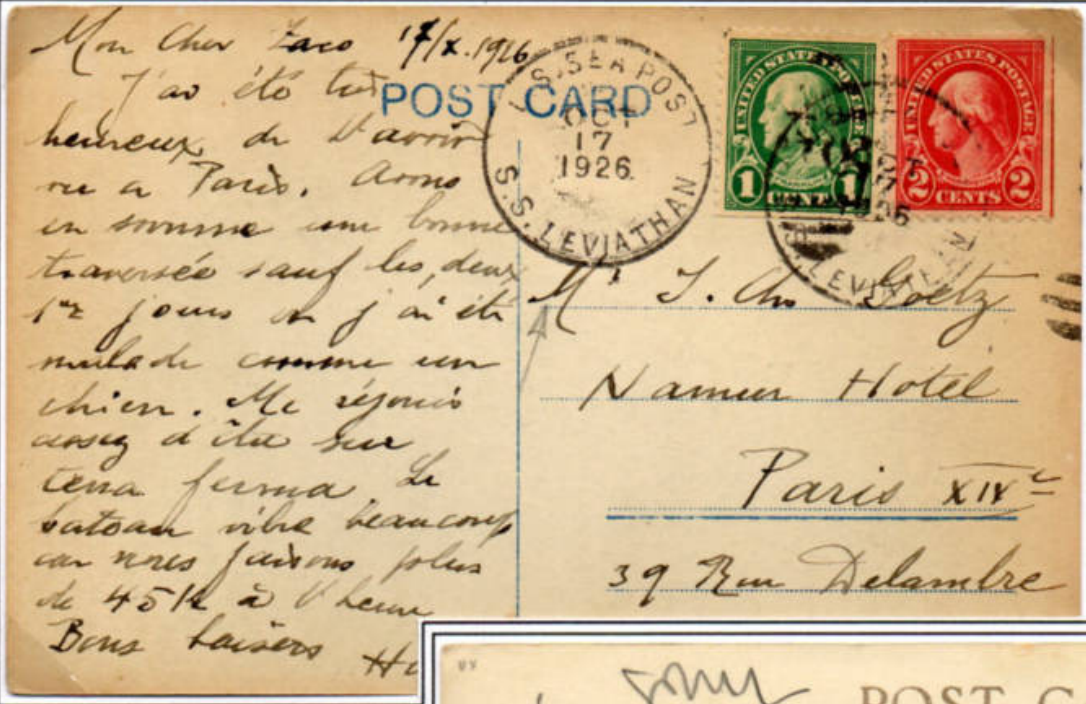 Mon Cher Zaco 17/X.1926
J'ai été très
heureux de t'avoir
vu a Paris. Avons
en somme une bonne
traversée sauf les deux
1er jours ou j'ai été
malade comme un
chien. Me réjouis
assez d'être sur
terra ferma. Le
bateau vibre beaucoup
car nous faisons plus
de 45 k à l'heure
Bons baisers
POST CARD
U.S. SEA POST
OCT
17
1926
S.S. LEVIATHAN
UNITED STATES POSTAGE
FRANKLIN
1 CENT 1
UNITED STATES POSTAGE
2 CENTS 2
1926
S.S. LEVIATHAN
M J. Ch Goetz
Namur Hotel
Paris XIVe
39 Rue Delambre
POST C